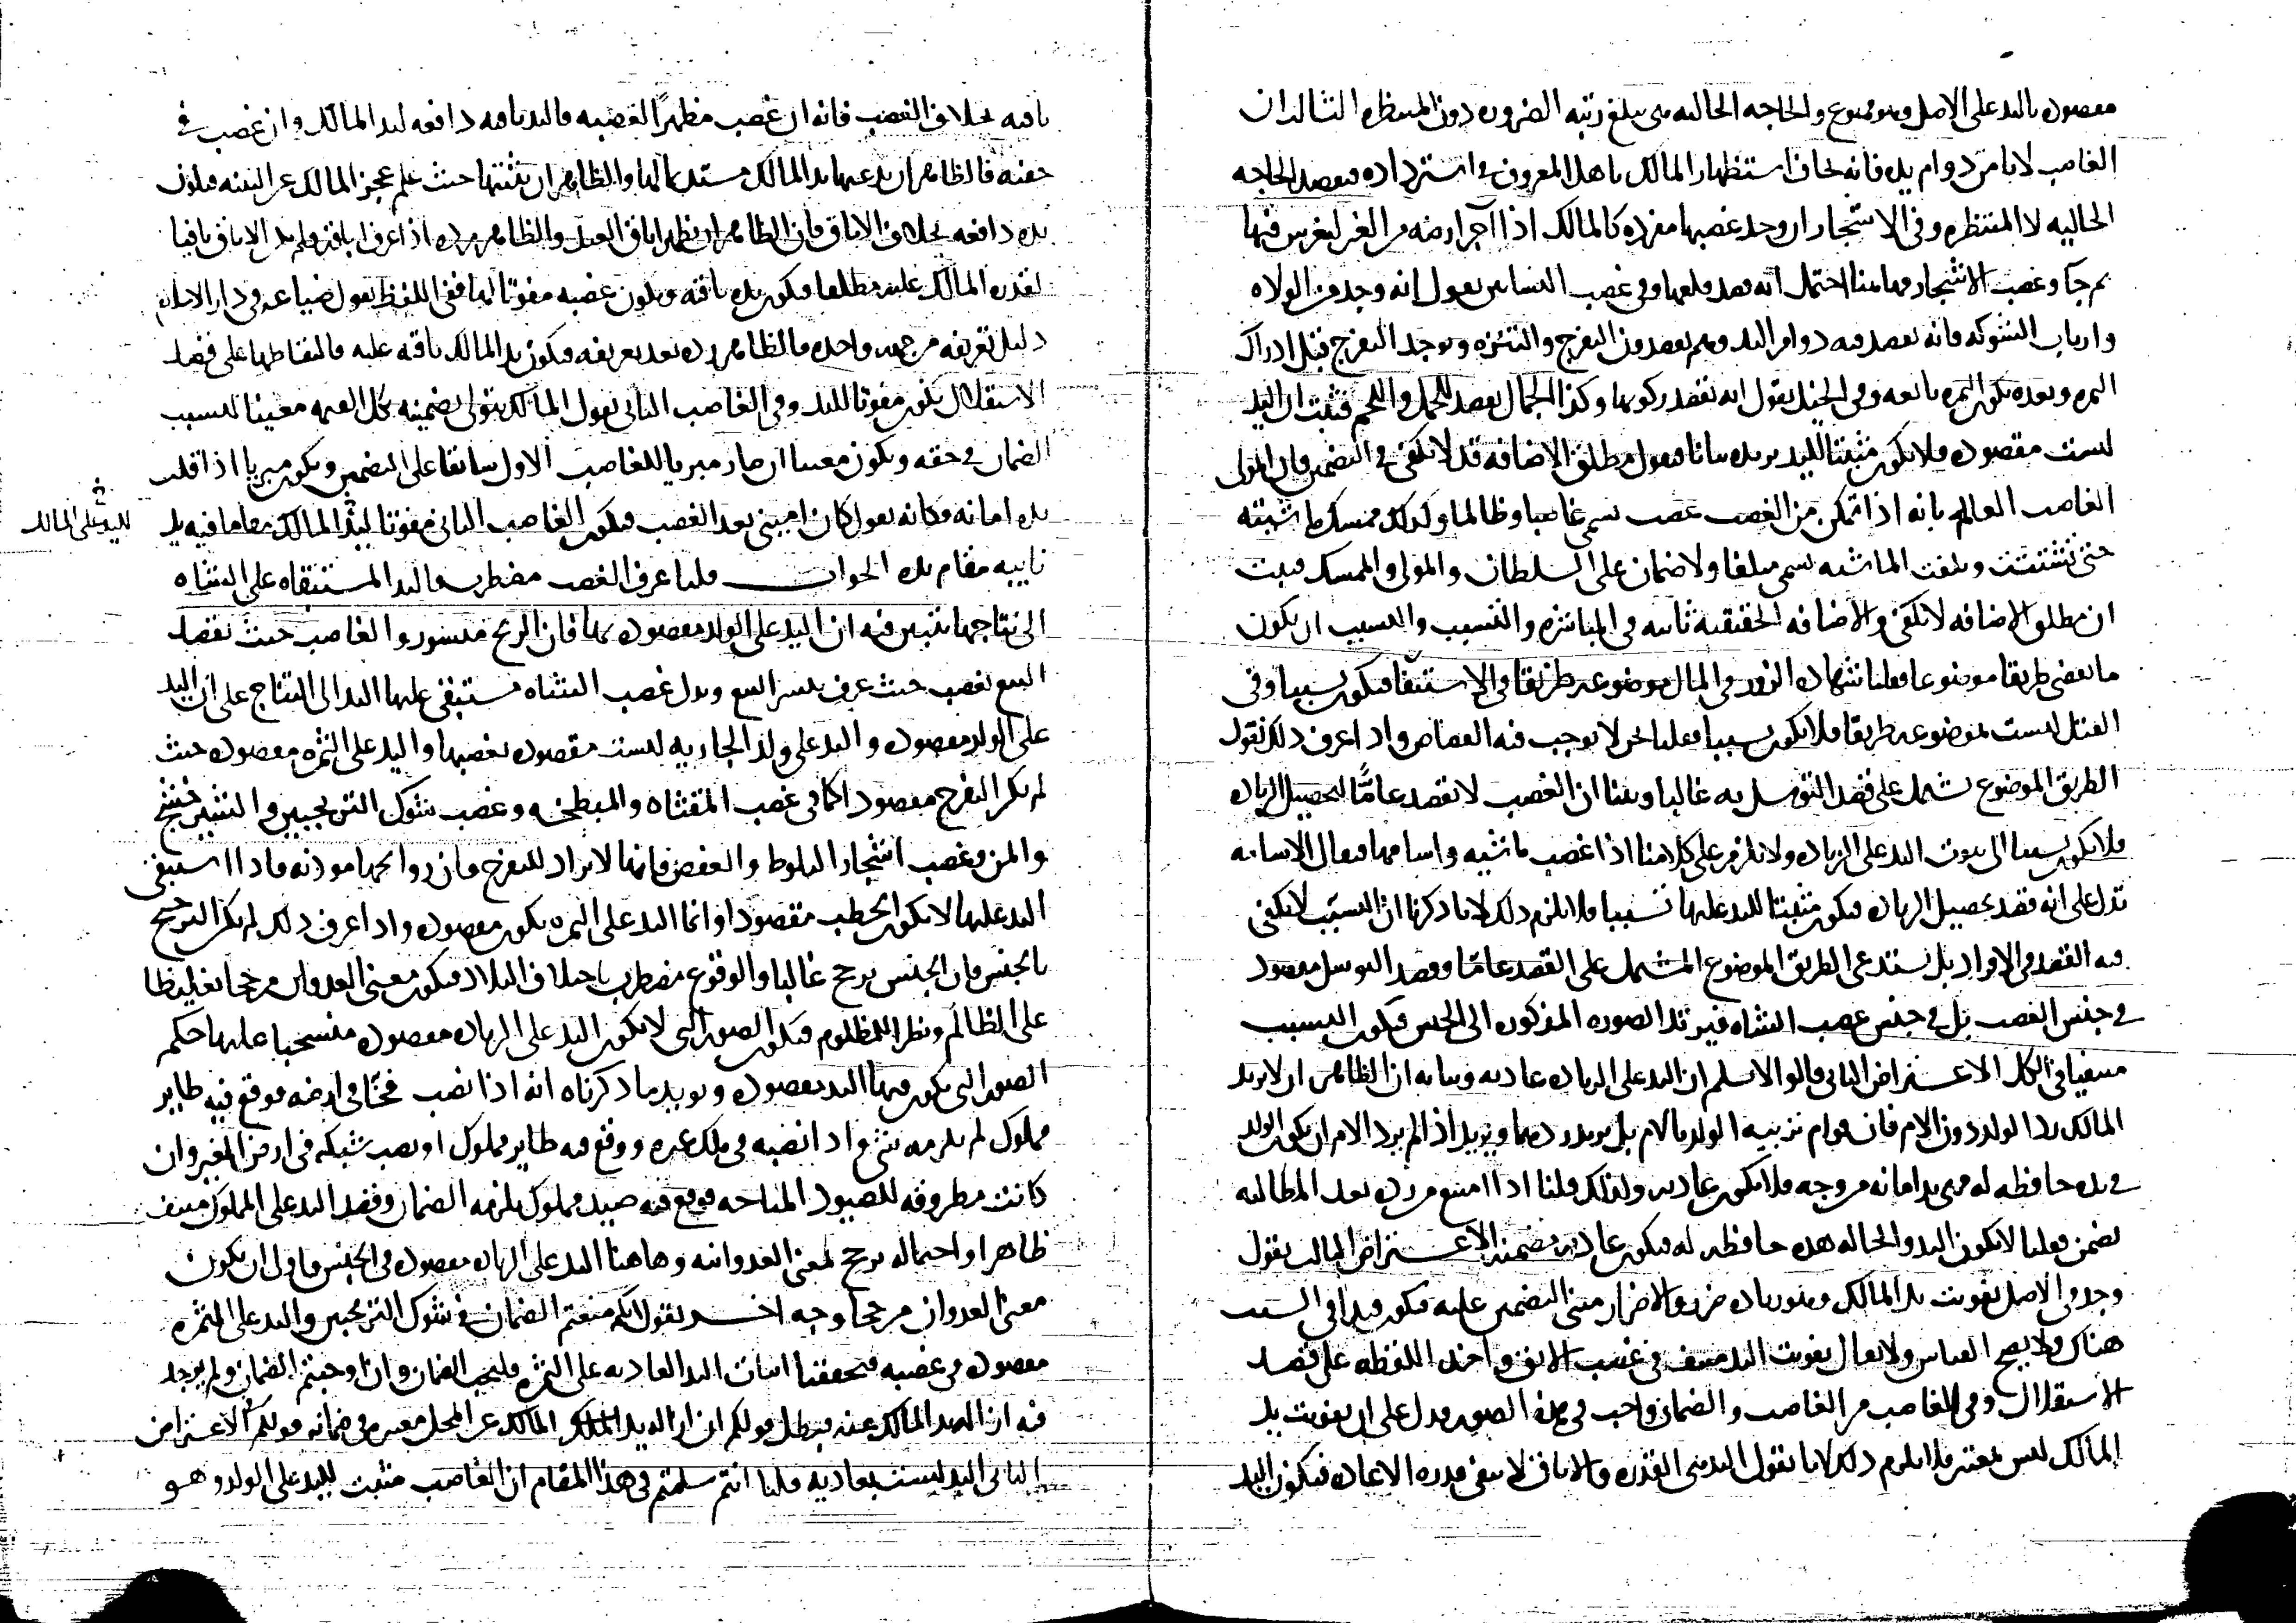 مقصوده باليد على الاصل وهو ممنوع والحاجه الحاليه هي تبلغ رتبه الضروره دون المنتظره الثالث ان
الغاصب لا يامن دوام يده فانه يخاف استظهار المالك باهل المعروف في استرداده فيقصد الحاجه
الحاليه لا المنتظره وفي الاستئجار ان وجد غصبها مفرده كالمالك اذا آجر ارضه من الغير ليغرس فيها
ثم جا وغصب الاشجار احتمل انه قصد قلعها وفي غصب البساتين يقول انه وجد من الولاه
وارباب الشوكه فانه يقصد فيه دوام اليد وهم يقصدون التفرج والتنزه ويوجد التفرج قبل ادراك
الثمره وبعده تكون الثمره تابعه وفي الخيل يقول انه يقصد ركوبها وكذا الجمال يقصد للحمل واللحم فثبت ان اليد
ليست مقصوده فلا يكون مثبتا لليد فيقول مطلق الاضافه قد لا تكفي في التضمين فان المولى
الغاصب العالم بانه اذا تمكن من الغصب غصب يسمى غاصبا وظالما وكذلك ممسك ماشيته
حتى تشتتت وتلفت الماشيه يسمى متلفا ولا ضمان على السلطان والمولى والممسك فثبت
ان مطلق الاضافه لا تكفي والاضافه الحقيقيه ثابته في المباشره والتسبب والتسبب ان يكون
ما يفضي طريقا موضوعا فقلنا شهاده الزور في المال موضوعه طريقا في الاستيفا فيكون سببا وفي
القتل ليست موضوعه طريقا فلا يكون سببا فقلنا نحن لا يوجب فيه القصاص واذا عرف ذلك نقول
الطريق الموضوع يشتمل على قصد التوسل به غالبا وبينا ان الغصب لا يقصد عامًّا لتحصيل الزياده
فلا يكون سببا الى ثبوت اليد على الزياده ولا يلزم على كلامنا اذا غصب ماشيه واسامها فيقال الاسامه
تدل على انه قصد تحصيل الزياده فيكون مثبتا لليد عليها تسببا فلا يلزم ذلك لانا ذكرنا ان التسبب لا يكفي
فيه القصد في الافراد بل يستدعي الطريق الموضوع المشتمل على القصد عامّا وقصد التوسل مقصود
في جنس الغصب بل في جنس غصب الشاه فيرتد الصوره المذكوره الى الجنس فيكون التسبب
منتفيا في الكل الاعتراض الثاني قالوا لا نسلم ان اليد على الزياده عاديه وبيانه ان الظاهر ان لا يريد
المالك رد الولد دون الام فان قوام تربيه الولد بالام بل يريد ردهما ويريد اذا لم يرد الام ان يكون الولد
في يده حافظه له فهي يد امانه من وجه فلا يكون عاديه ولذلك قلنا اذا امتنع من رده بعد المطالبه
يضمن فقلنا لا يكون اليد والحاله هذه حافظه له فيكون عاديه مضمنه الاعتراض الثالث يقول
وجد في الاصل تفويت يد المالك وهو زياده ضرر والاضرار مبنى التضمين عليه فيكون قيدا في السبب
هناك ولا يصح القياس ولا يقال تفويت اليد منتف في غصب الابق واخذ اللقطه على قصد
الاستقلال وفي الغاصب من الغاصب والضمان واجب في هذه الصور فدل على ان تفويت يد
المالك ليس بمعتبر فلا يلزم ذلك لانا نقول اليد هي القدره والاباق لا ينفي قدره الاعاده فيكون اليد
باقيه بخلاف الغصب فانه ان غصب مظهرًا لغصبه فاليد باقيه دافعه ليد المالك وان غصب في
خفيه فالظاهر ان يدعيها يد المالك مستديما لها والظاهر ان يثبتها حيث علم عجز المالك عن البينه فيكون
يده دافعه بخلاف الاباق فان الظاهر ان يظهر اباق العبد والظاهر رده اذا عرف اباقه فلم يدع الاباق نافيا
لقدره المالك عليه مطلقا فيكون يده باقيه ويكون غصبه مفوتا لها ففي اللقطه يقول ضياعه في دار الاسلام
دليل تعريفه من جهه واحده والظاهر رده بعد تعريفه فيكون يد المالك باقيه عليه فالتقاطها على قصد
الاستقلال يكون مفوتا لليد وفي الغاصب الثاني يقول المالك يتولى تضمينه كل القيمه معينا لسبب
الضمان في حقه ويكون معينا ان صار مبريا للغاصب الاول سابقا على التضمين ويكون مبريا اذا قلب
يده امانه فكانه يقول كان اميني بعد الغصب فيكون الغاصب الثاني مفوتا ليد المالك مقاما فيه يد
لليد على المالك
نايبه مقام يده الجواب قلنا عرف الغصب مضطرب فاليد المستبقاه على الشاه
الى نتاجها يتبين فيه ان اليد على الولد مقصوده بها فان الربح ميسور والغاصب حيث يقصد
البيع يغصب حيث عرف تيسر البيع ويدل غصب الشاه مستبقي عليها اليد الى النتاج على ان اليد
على الولد مقصوده واليد على ولد الجاريه ليست مقصوده بغصبها واليد على الثمره مقصوده حيث
لم يكن التفرج مقصودا كما في غصب المقثاه والمبطخه وغصب شوك الترنجبين والشيرخشج
والمن وغصب اشجار البلوط والعفص فانها لا تراد للتفرج فان روائحها موذيه فاذا استبقى
اليد عليها لا يكون الحطب مقصودا وانما اليد على الثمره يكون مقصوده واذا عرف ذلك لم يكن الترجيح
بالجنس فان الجنس يرجح غالبا والوقوع مضطرب باختلاف البلاد فيكون معنى العدوان مرجحا تغليظا
على الظالم ونظرا للمظلوم فيكون الصور التي لا يكون اليد على الزياده مقصوده منسحبا عليها حكم
الصور التي يكون فيها اليد مقصوده ويويد ما ذكرناه انه اذا نصب فخّا في ارضه فوقع فيه طاير
مملوك لم يلزمه شي واذا نصبه في ملك غيره ووقع فيه طاير مملوك او نصب شبكه في ارض الغير وان
كانت مطروقه للصيود المباحه فوقع فيه صيد مملوك يلزمه الضمان وقصد اليد على المملوك منتف
ظاهرا واحتماله يرجح لمعنى العدوانيه وهاهنا اليد على الزياده مقصوده في الجنس فاولى ان يكون
معنى العدوان مرجحا وجه اخر يقول لانكم منعتم الضمان في شوك الترنجبين واليد على الثمره
مقصوده في غصبه فتحققنا اثبات اليد العاديه على الثمره فليجب الضمان وان اوجبتم الضمان ولم يوجد
فيه ازاله يد المالك عنه فيبطل قولكم ان ازاله يد المالك عن المحل معتبر في ضمانه قولكم الاعتراض
الثاني اليد ليست بعاديه قلنا انتم سلمتم في هذا المقام ان الغاصب مثبت لليد على الولد وهو